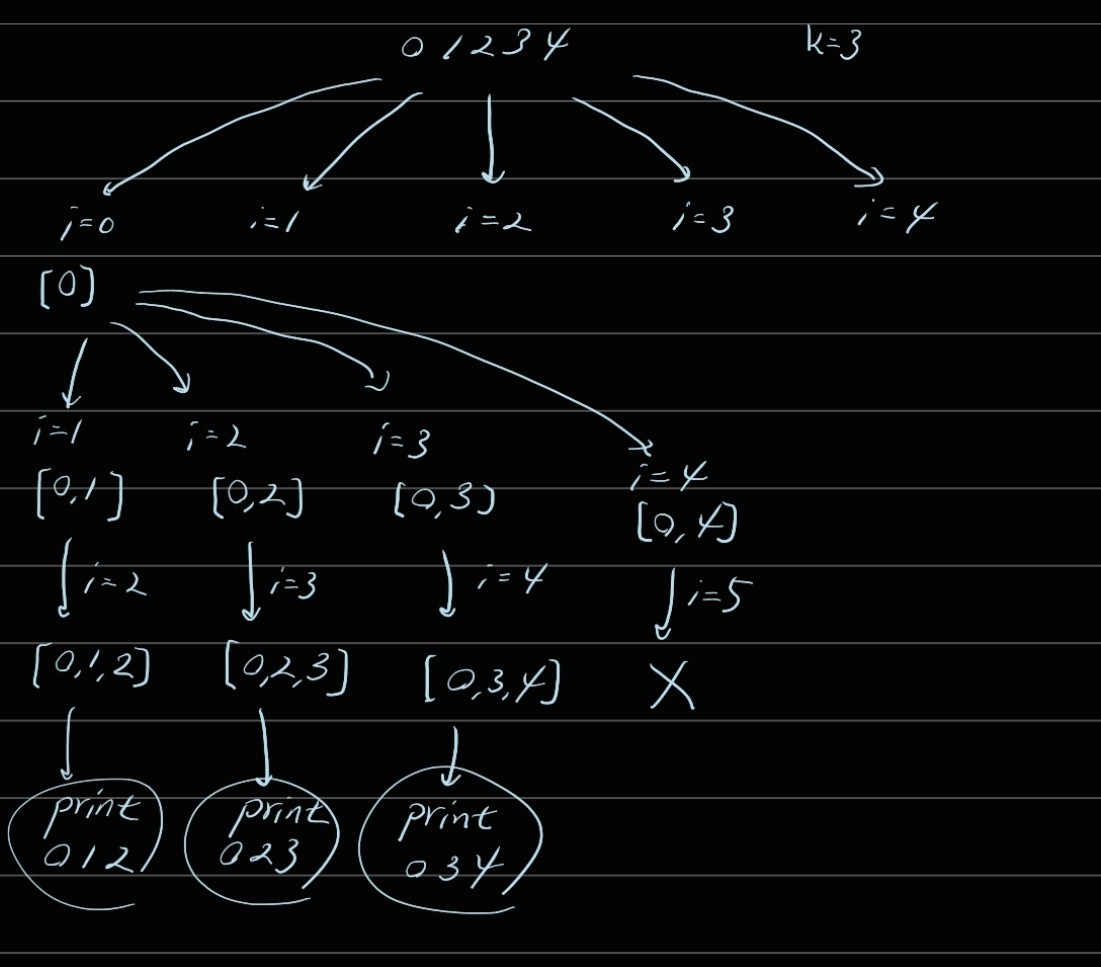 0 1 2 3 4 k=3
i=0 i=1 i=2 i=3 i=4
[0]
i=1 i=2 i=3 i=4
[0,1] [0,2] [0,3] [0,4]
i=2 i=3 i=4 i=5
[0,1,2] [0,2,3] [0,3,4] X
print print print
0 1 2 0 2 3 0 3 4